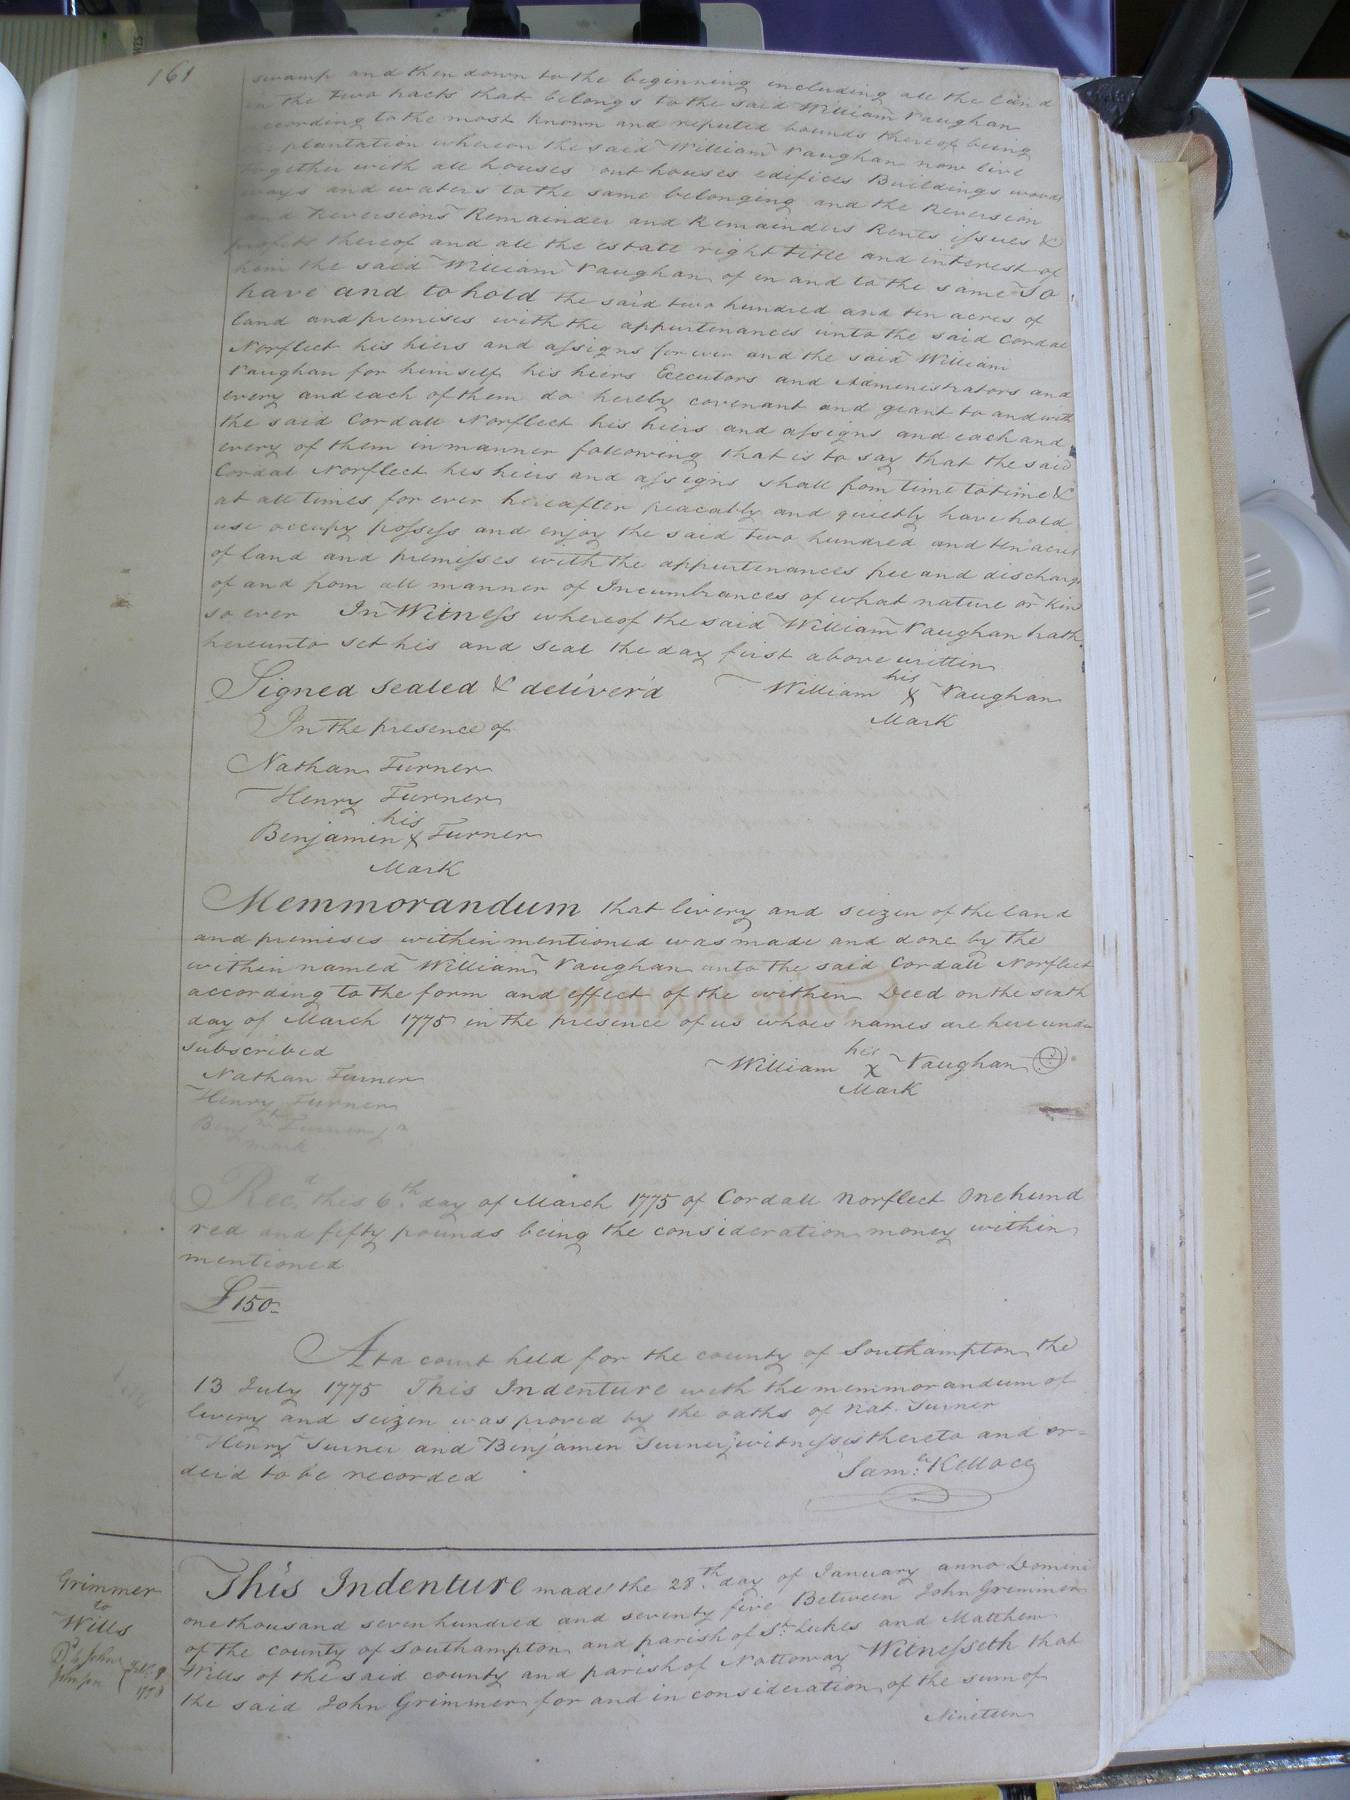 161
swamp and then down to the beginning including all the land
in the two tracts that belongs to the said William Vaughan
according to the most known and reputed bounds thereof being
plantation whereon the said William Vaughan now live
together with all houses out houses edifices Buildings woods
ways and waters to the same belonging and the Reversion
and Reversions Remainder and Remainders Rents issues &
profits thereof and all the estate right title and interest of
him the said William Vaughan of in and to the same To
have and to hold the said two hundred and ten acres of
land and premises with the appurtenances unto the said Cordal
Norflect his heirs and assigns for ever and the said William
Vaughan for himself his heirs Executors and Administrators and
every and each of them do hereby covenant and grant to and with
the said Cordall Norflect his heirs and assigns and each and
every of them in manner following that is to say that the said
Cordal Norflect his heirs and assigns shall from time to time &
at all times for ever hereafter peacably and quietly have hold
use occupy possess and enjoy the said two hundred and ten acres
of land and premisses with the appurtenances free and discharg
of and from all manner of Incumbrances of what nature or kind
so ever In Witness whereof the said William Vaughan hath
hereunto set his and seal the day first above written
Signed sealed & deliver'd William his X Vaughan
Mark
In the presence of
Nathan Turner
Henry Turner
his
Benjamin X Turner
Mark
Memmorandum that livery and seizen of the land
and premises within mentioned was made and done by the
within named William Vaughan unto the said Cordall Norflect
according to the form and effect of the within Deed on the sixth
day of March 1775 in the presence of us whoes names are hereunder
subscribed
William his X Vaughan
Mark
Nathan Turner
Henry Turner
mark
Recd this 6th day of March 1775 of Cordall Norflect One hund
red and fifty pounds being the consideration money within
mentioned
£150
At a court held for the county of Southampton the
13 July 1775 This Indenture with the memmorandum of
livery and seizen was proved by the oaths of Nat. Turner
Henry Turner and Benjamen Turner witnesses thereto and or=
der'd to be recorded
Saml. Kelloce
Grimmer
to
Wills
This Indenture made the 28th day of January anno Domini
one thousand seven hundred and seventy five Between John Grimmer
of the county of Southampton and parish of St. Lukes and Matthew
Wills of the said county and parish of Nottoway Witnesseth that
the said John Grimmer for and in consideration of the sum of
Nineteen